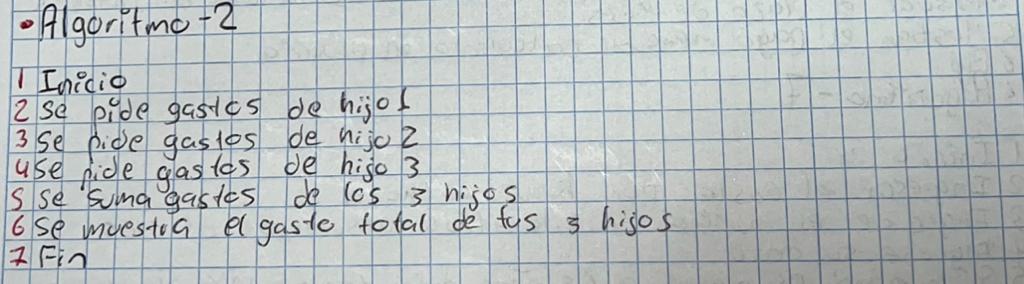 •Algoritmo-2
1 Inicio
2 Se pide gastos de hijo1
3 Se pide gastos de hijo 2
4 Se pide gastos de hijo 3
5 Se suma gastos de los 3 hijos
6 Se muestra el gasto total de tus 3 hijos
7 Fin